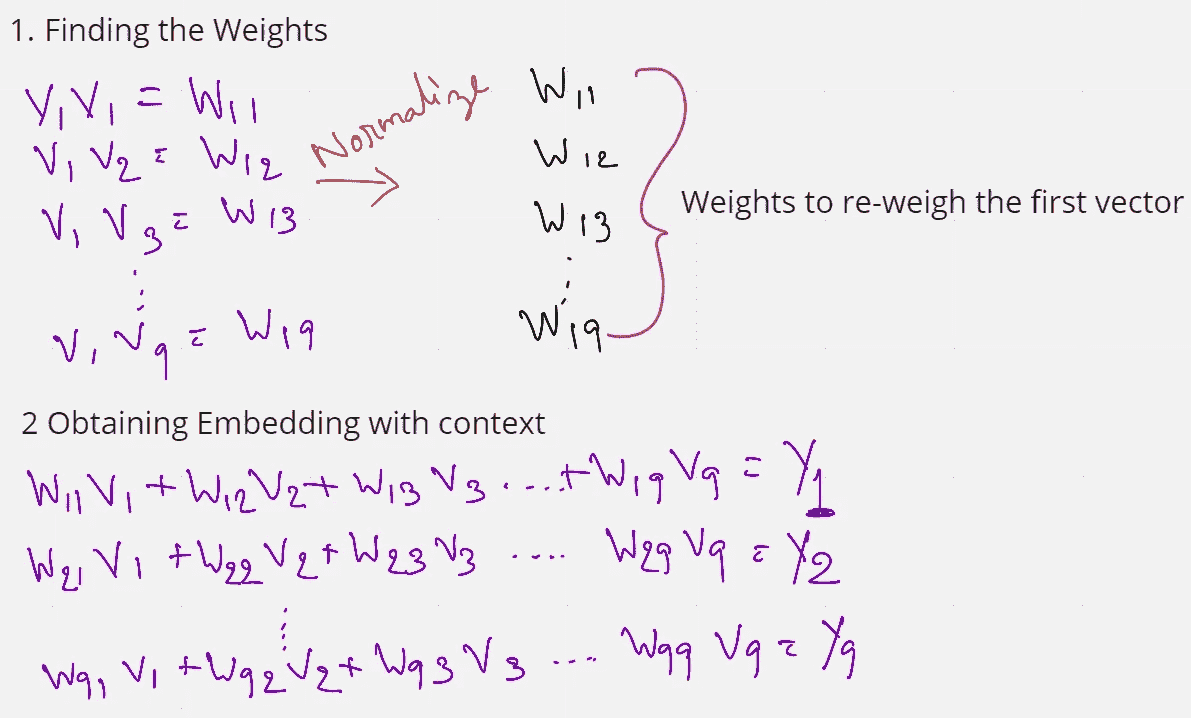 1. Finding the Weights
V1 V1 = W11
V1 V2 = W12
V1 V3 = W13
⋮
V1 V9 = W19
Normalize
W11
W12
W13
⋮
W19
Weights to re-weigh the first vector
2 Obtaining Embedding with context
W11 V1 + W12 V2 + W13 V3 .... + W19 V9 = Y1
W21 V1 + W22 V2 + W23 V3 .... W29 V9 = Y2
⋮
W91 V1 + W92 V2 + W93 V3 .... W99 V9 = Y9